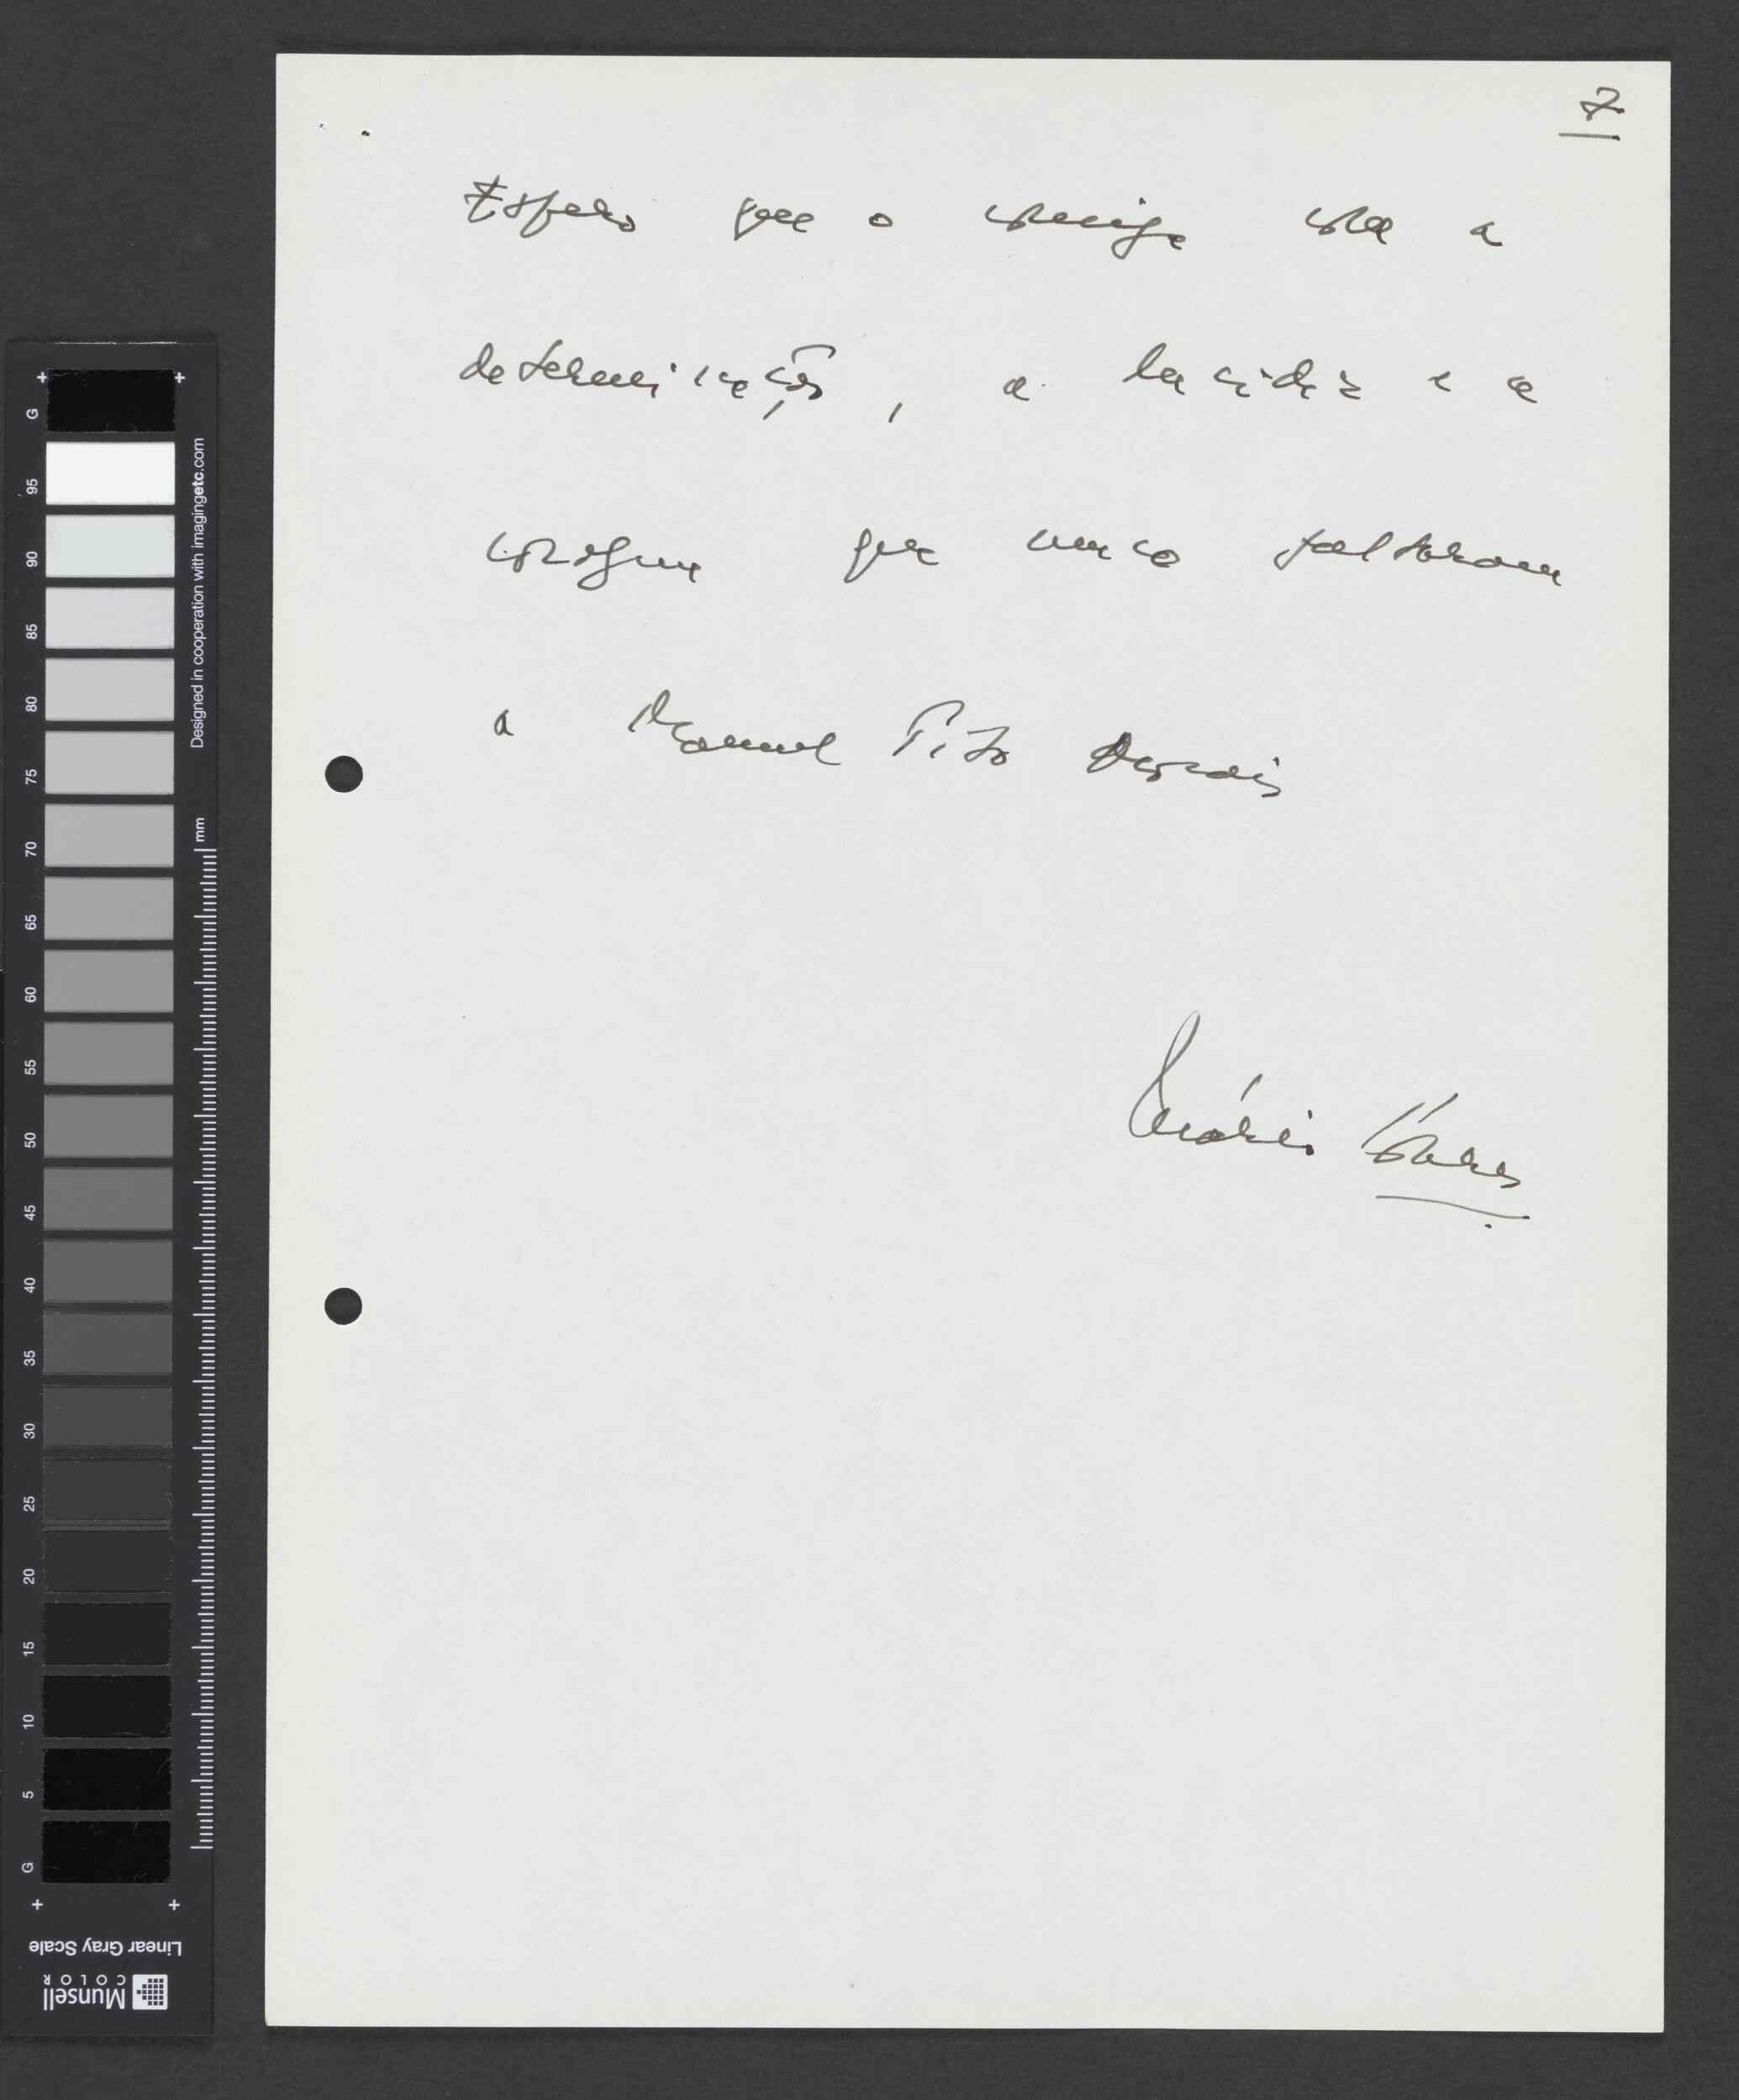 7
Espero que o consiga com a
determinação, a lucidez e a
coragem que nunca faltaram
a Manuel Tito de Morais
Mário Soares
G
95
90
85
80
75
70
65
60
55
50
45
40
35
30
25
20
15
10
5
G
Designed in cooperation with imagingetc.com
mm
Linear Gray Scale
Munsell
COLOR